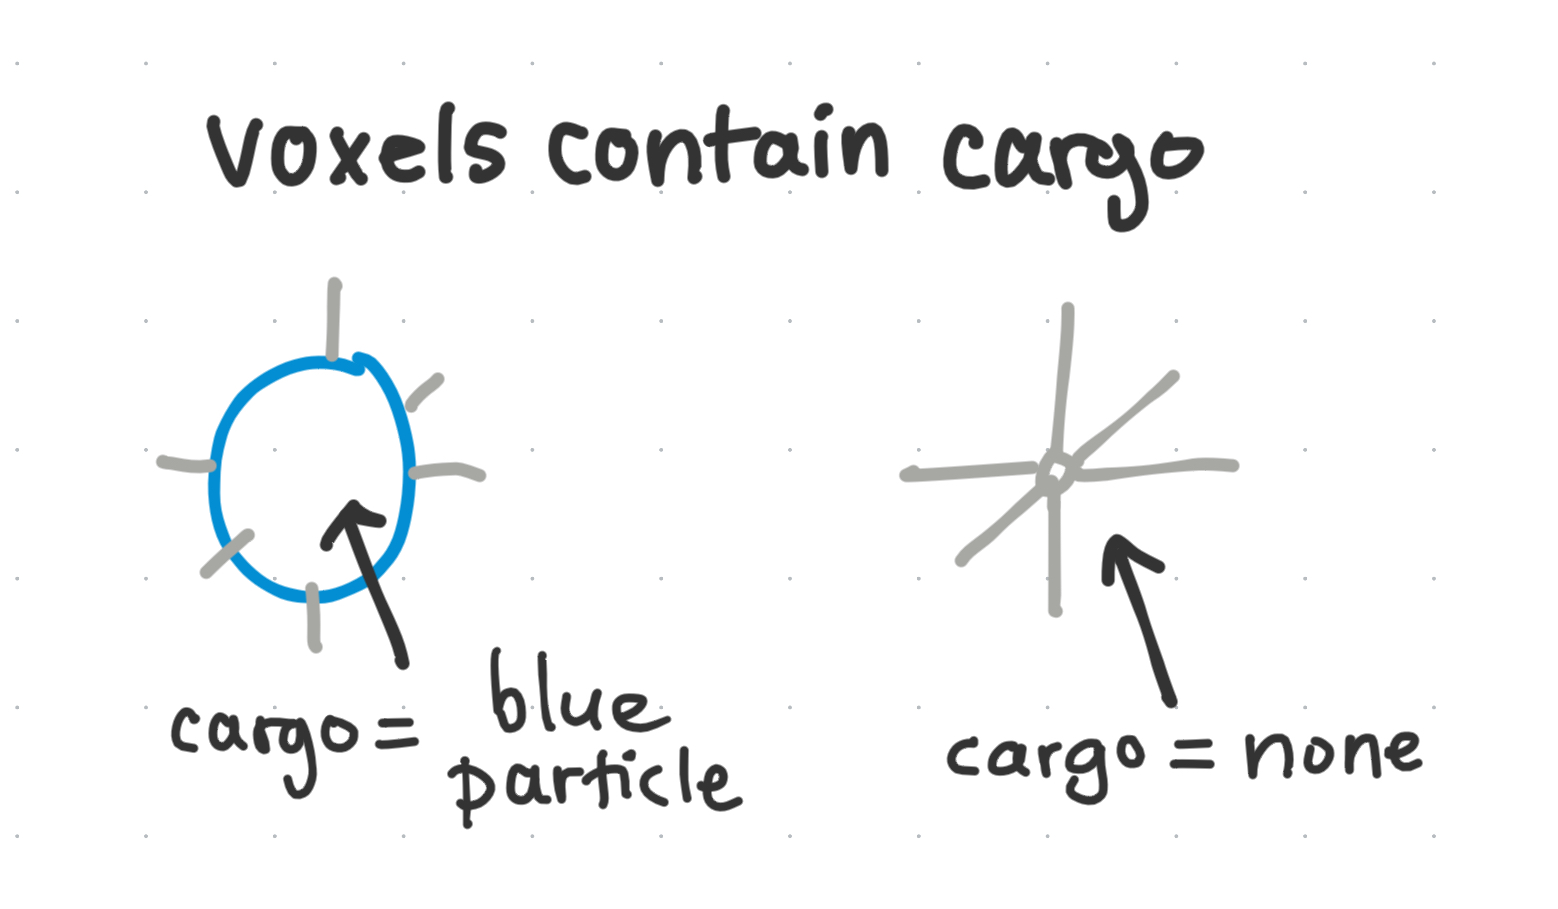 Voxels contain cargo
cargo = blue particle
cargo = none